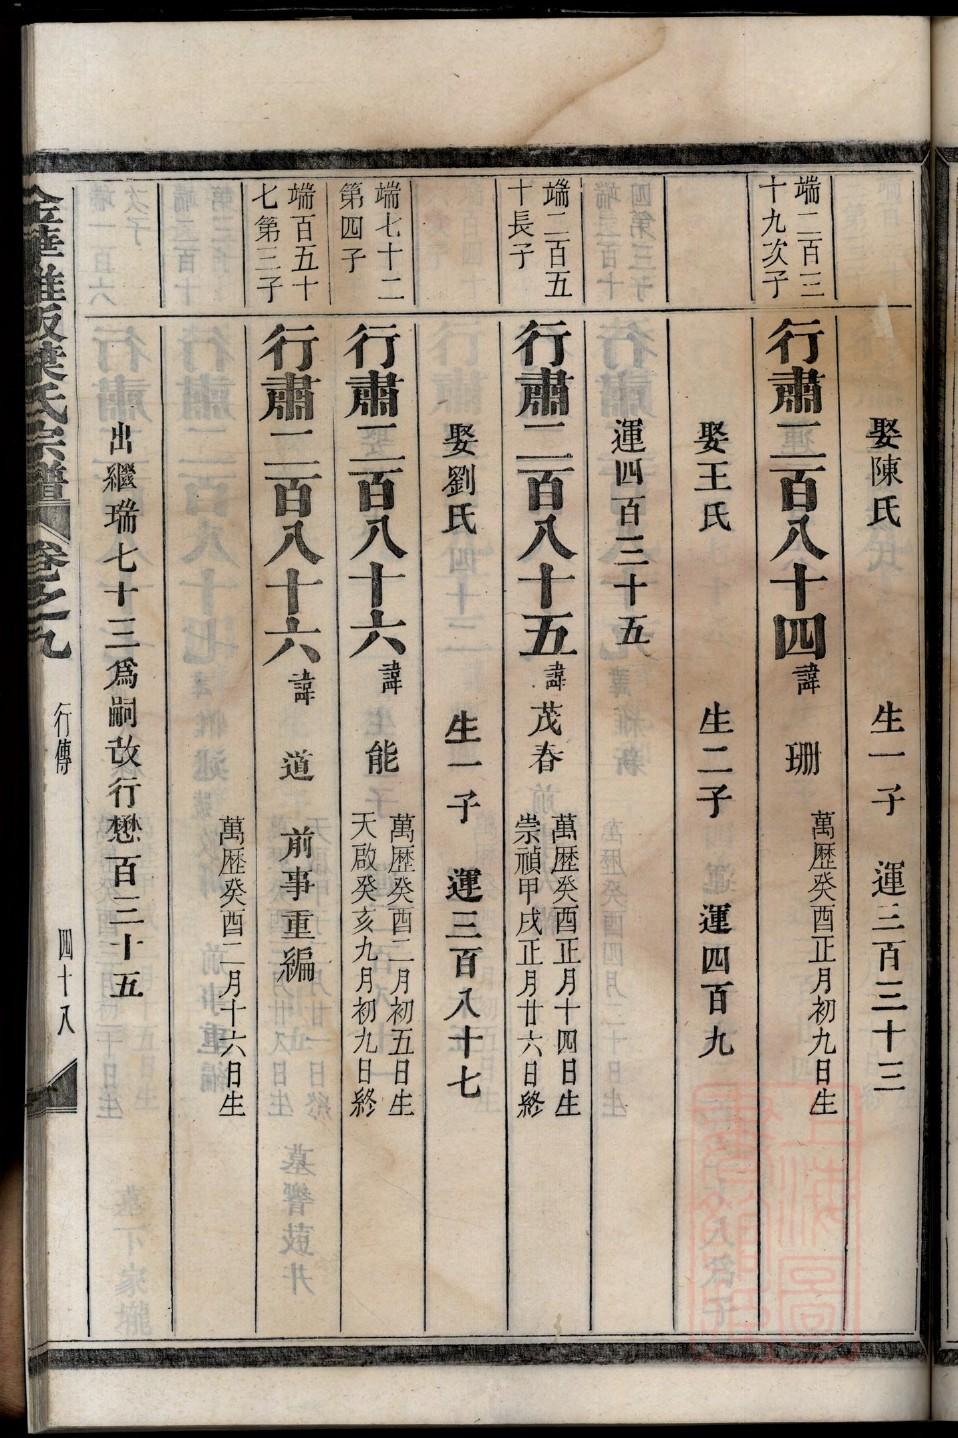 娶陳氏 生一子 運三百三十三
端二百三
十九次子
行肅二百八十四 諱 珊 萬歷癸酉正月初九日生
娶王氏 生二子 運四百九
運四百三十五
端二百五
十長子
行肅二百八十五 諱茂春 萬歷癸酉正月十四日生
崇禎甲戌正月廿六日終
娶劉氏 生一子 運三百八十七
端七十二
第四子
行肅二百八十六 諱 能 萬歷癸酉二月初五日生
天啟癸亥九月初九日終
端百五十
七第三子
行肅二百八十六 諱 道 前事重編
萬歷癸酉二月十六日生
出繼瑞七十三爲嗣改行懋百三十五
金華雅畈葉氏宗譜 卷之九 行傳 四十八